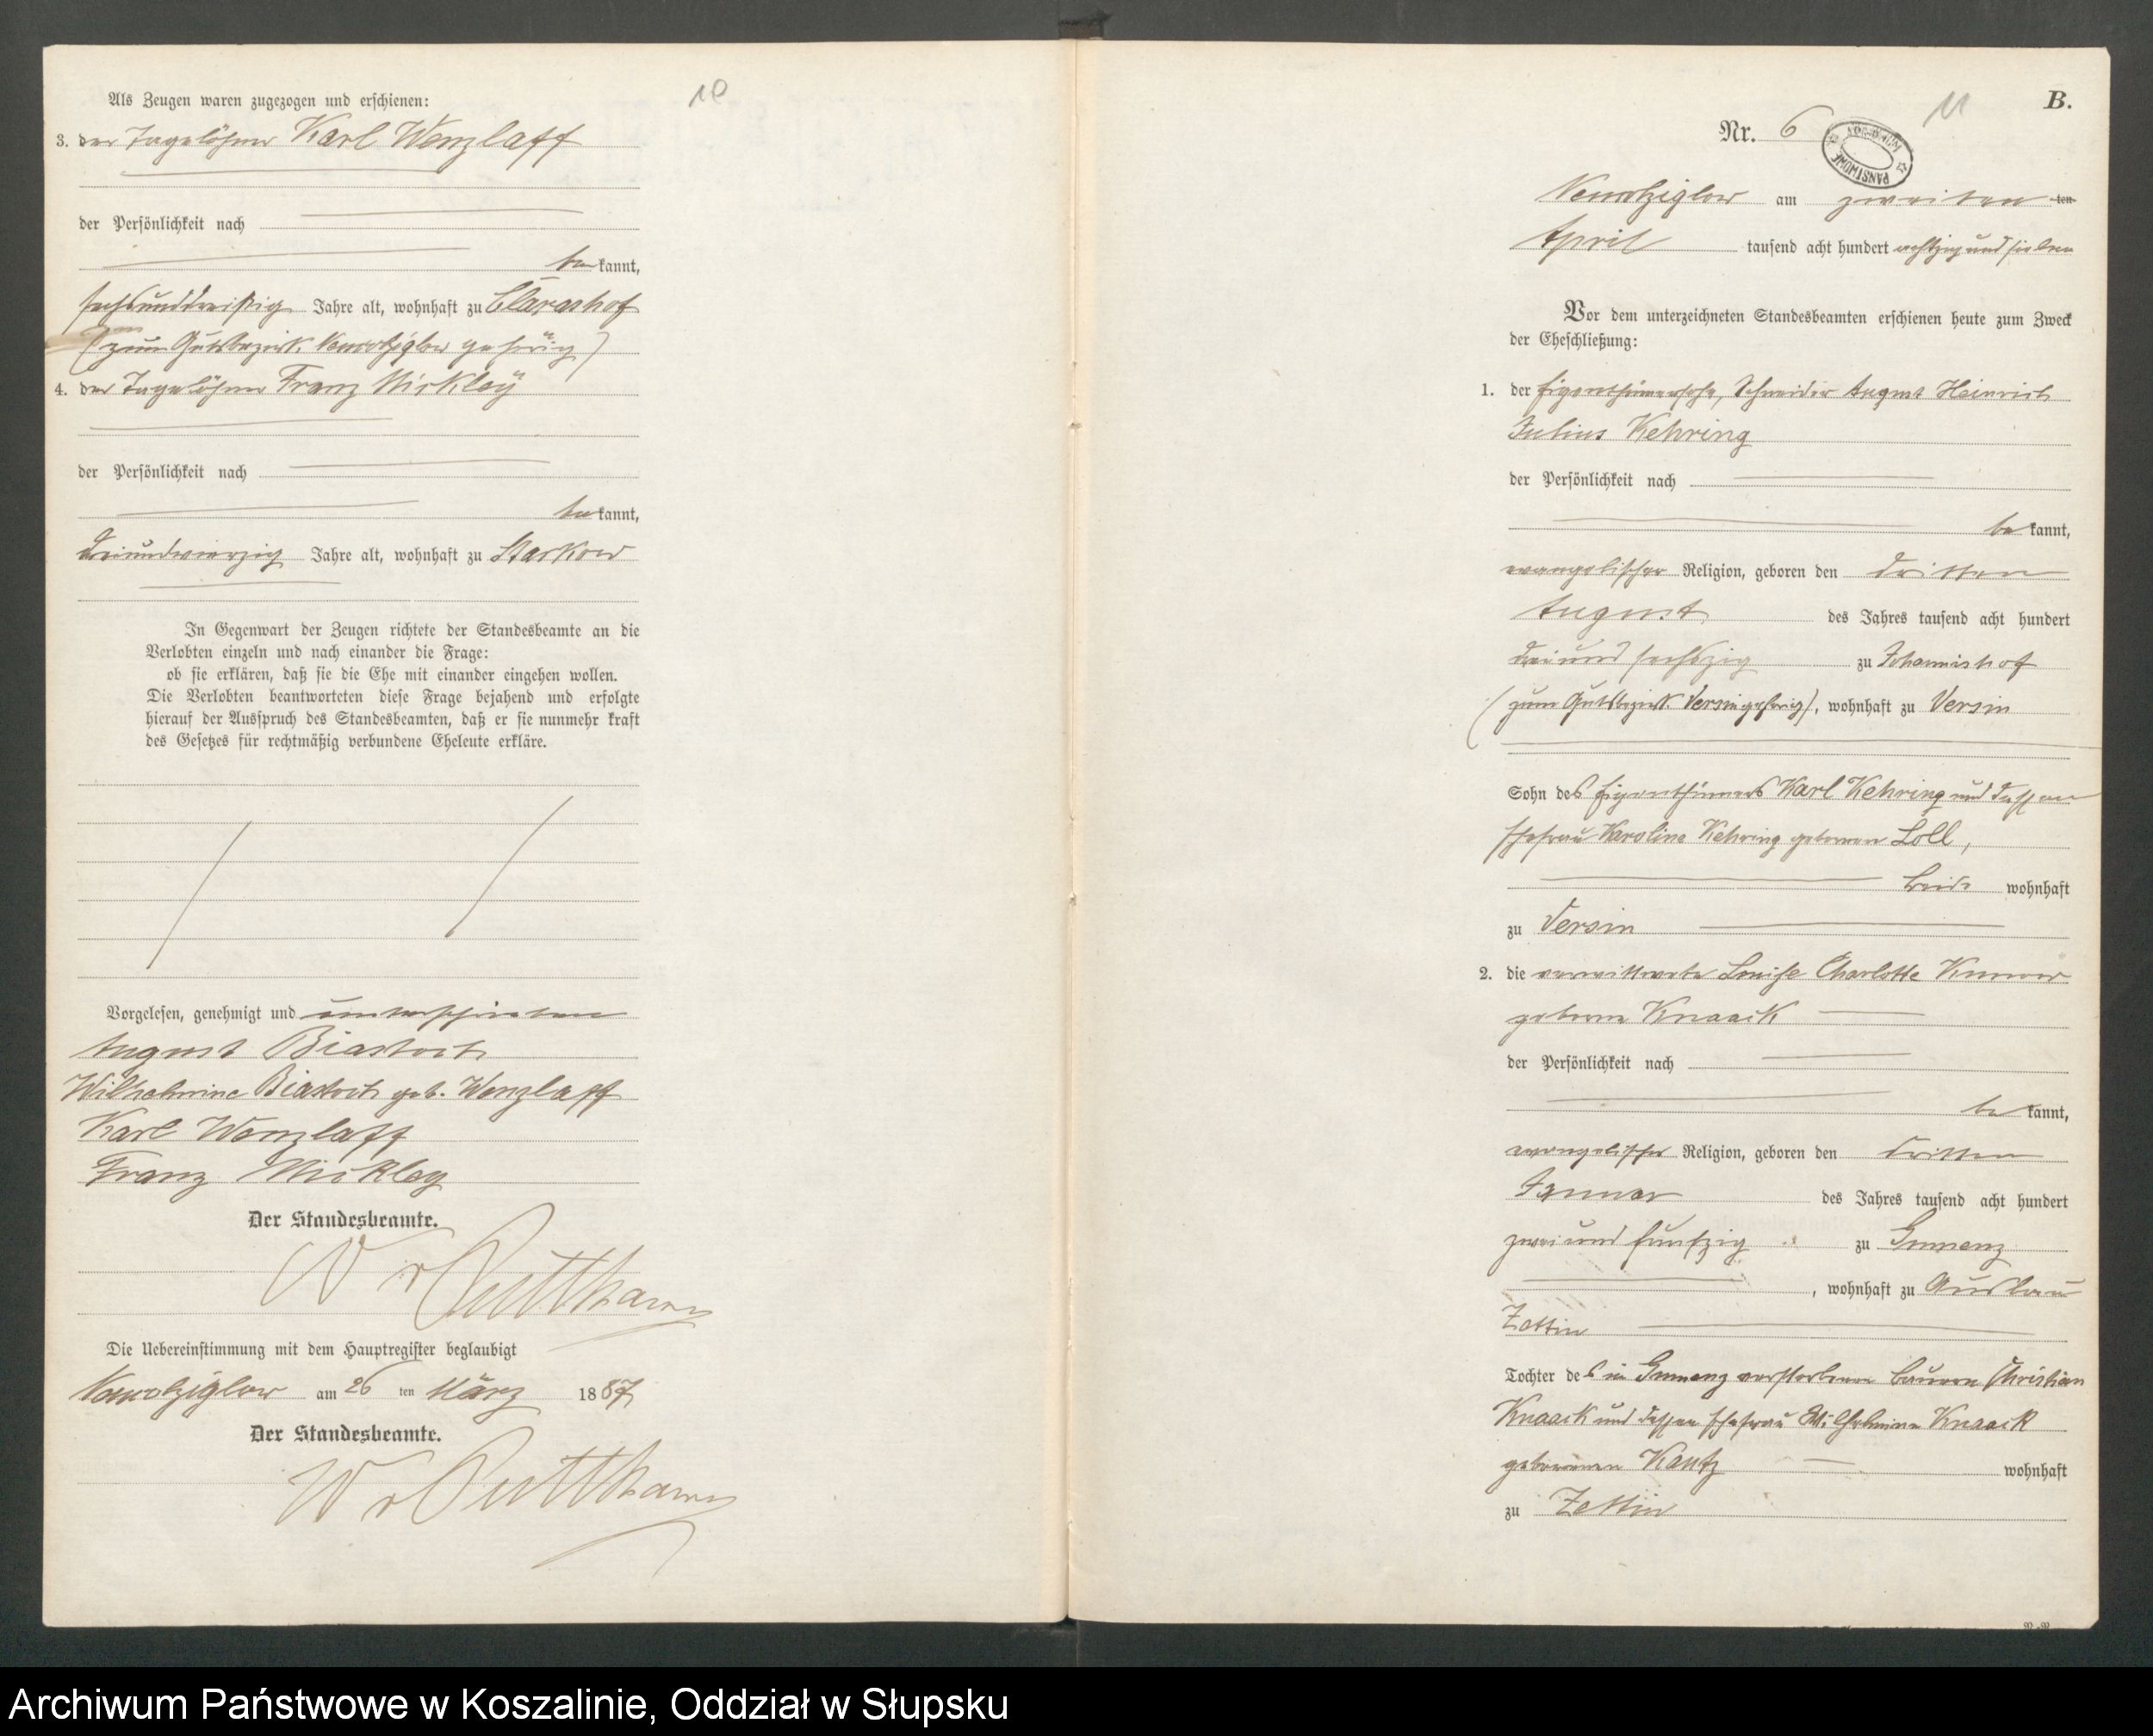 10
Als Zeugen waren zugezogen und erschienen:
3. der Tagelöhner Karl Wenzlaff
der Persönlichkeit nach
be kannt,
sechsunddreißig Jahre alt, wohnhaft zu Clarashof
(zum Gutsbezirk gehörig)
4. der Tagelöhner Franz Mickley
der Persönlichkeit nach
be kannt,
dreiundvierzig Jahre alt, wohnhaft zu Starkow
In Gegenwart der Zeugen richtete der Standesbeamte an die
Verlobten einzeln und nach einander die Frage:
ob sie erklären, daß sie die Ehe mit einander eingehen wollen.
Die Verlobten beantworteten diese Frage bejahend und erfolgte
hierauf der Ausspruch des Standesbeamten, daß er sie nunmehr kraft
des Gesetzes für rechtmäßig verbundene Eheleute erkläre.
Vorgelesen, genehmigt und unterschrieben
August Biastoch
Wilhelmine Biastoch geb. Wenzlaff
Karl Wenzlaff
Franz Mickley
Der Standesbeamte.
W v Puttkamer
Die Uebereinstimmung mit dem Hauptregister beglaubigt
am 26 ten März 1887
Der Standesbeamte.
W v Puttkamer
11
B.
Nr. 6
am zweiten ten
April tausend acht hundert achtzig und sieben
Vor dem unterzeichneten Standesbeamten erschienen heute zum Zweck
der Eheschließung:
1. der Eigenthümersohn, Schneider August Heinrich
Julius Kehring
der Persönlichkeit nach
be kannt,
evangelischer Religion, geboren den dritten
August des Jahres tausend acht hundert
drei und sechszig zu Johannishof
(zum Gutsbezirk Versin gehörig), wohnhaft zu Versin
Sohn des Eigenthümers Karl Kehring und dessen
Ehefrau Karoline Kehring geborenen Loll,
beide wohnhaft
zu Versin
2. die verwittwete Louise Charlotte
geborene Knaack
der Persönlichkeit nach
be kannt,
evangelischer Religion, geboren den dritten
Januar des Jahres tausend acht hundert
zwei und fünfzig zu Gumenz
, wohnhaft zu Ausbau
Zettin
Tochter des in Gumenz verstorbenen Bauern Christian
Knaack und dessen Ehefrau Wilhelmine Knaack
geborenen Kautz wohnhaft
zu Zettin
Archiwum Państwowe w Koszalinie, Oddział w Słupsku